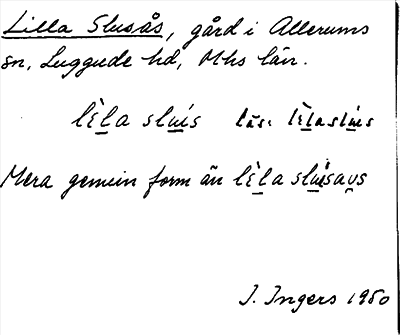 Lilla Slusås, gård i Allerums
sn, Luggude hd, Mhs län.
lèla slu̱is läs: lèlaslu̱is
Mera gemein form än lèla slu̱isau̯s
I. Ingers 1950